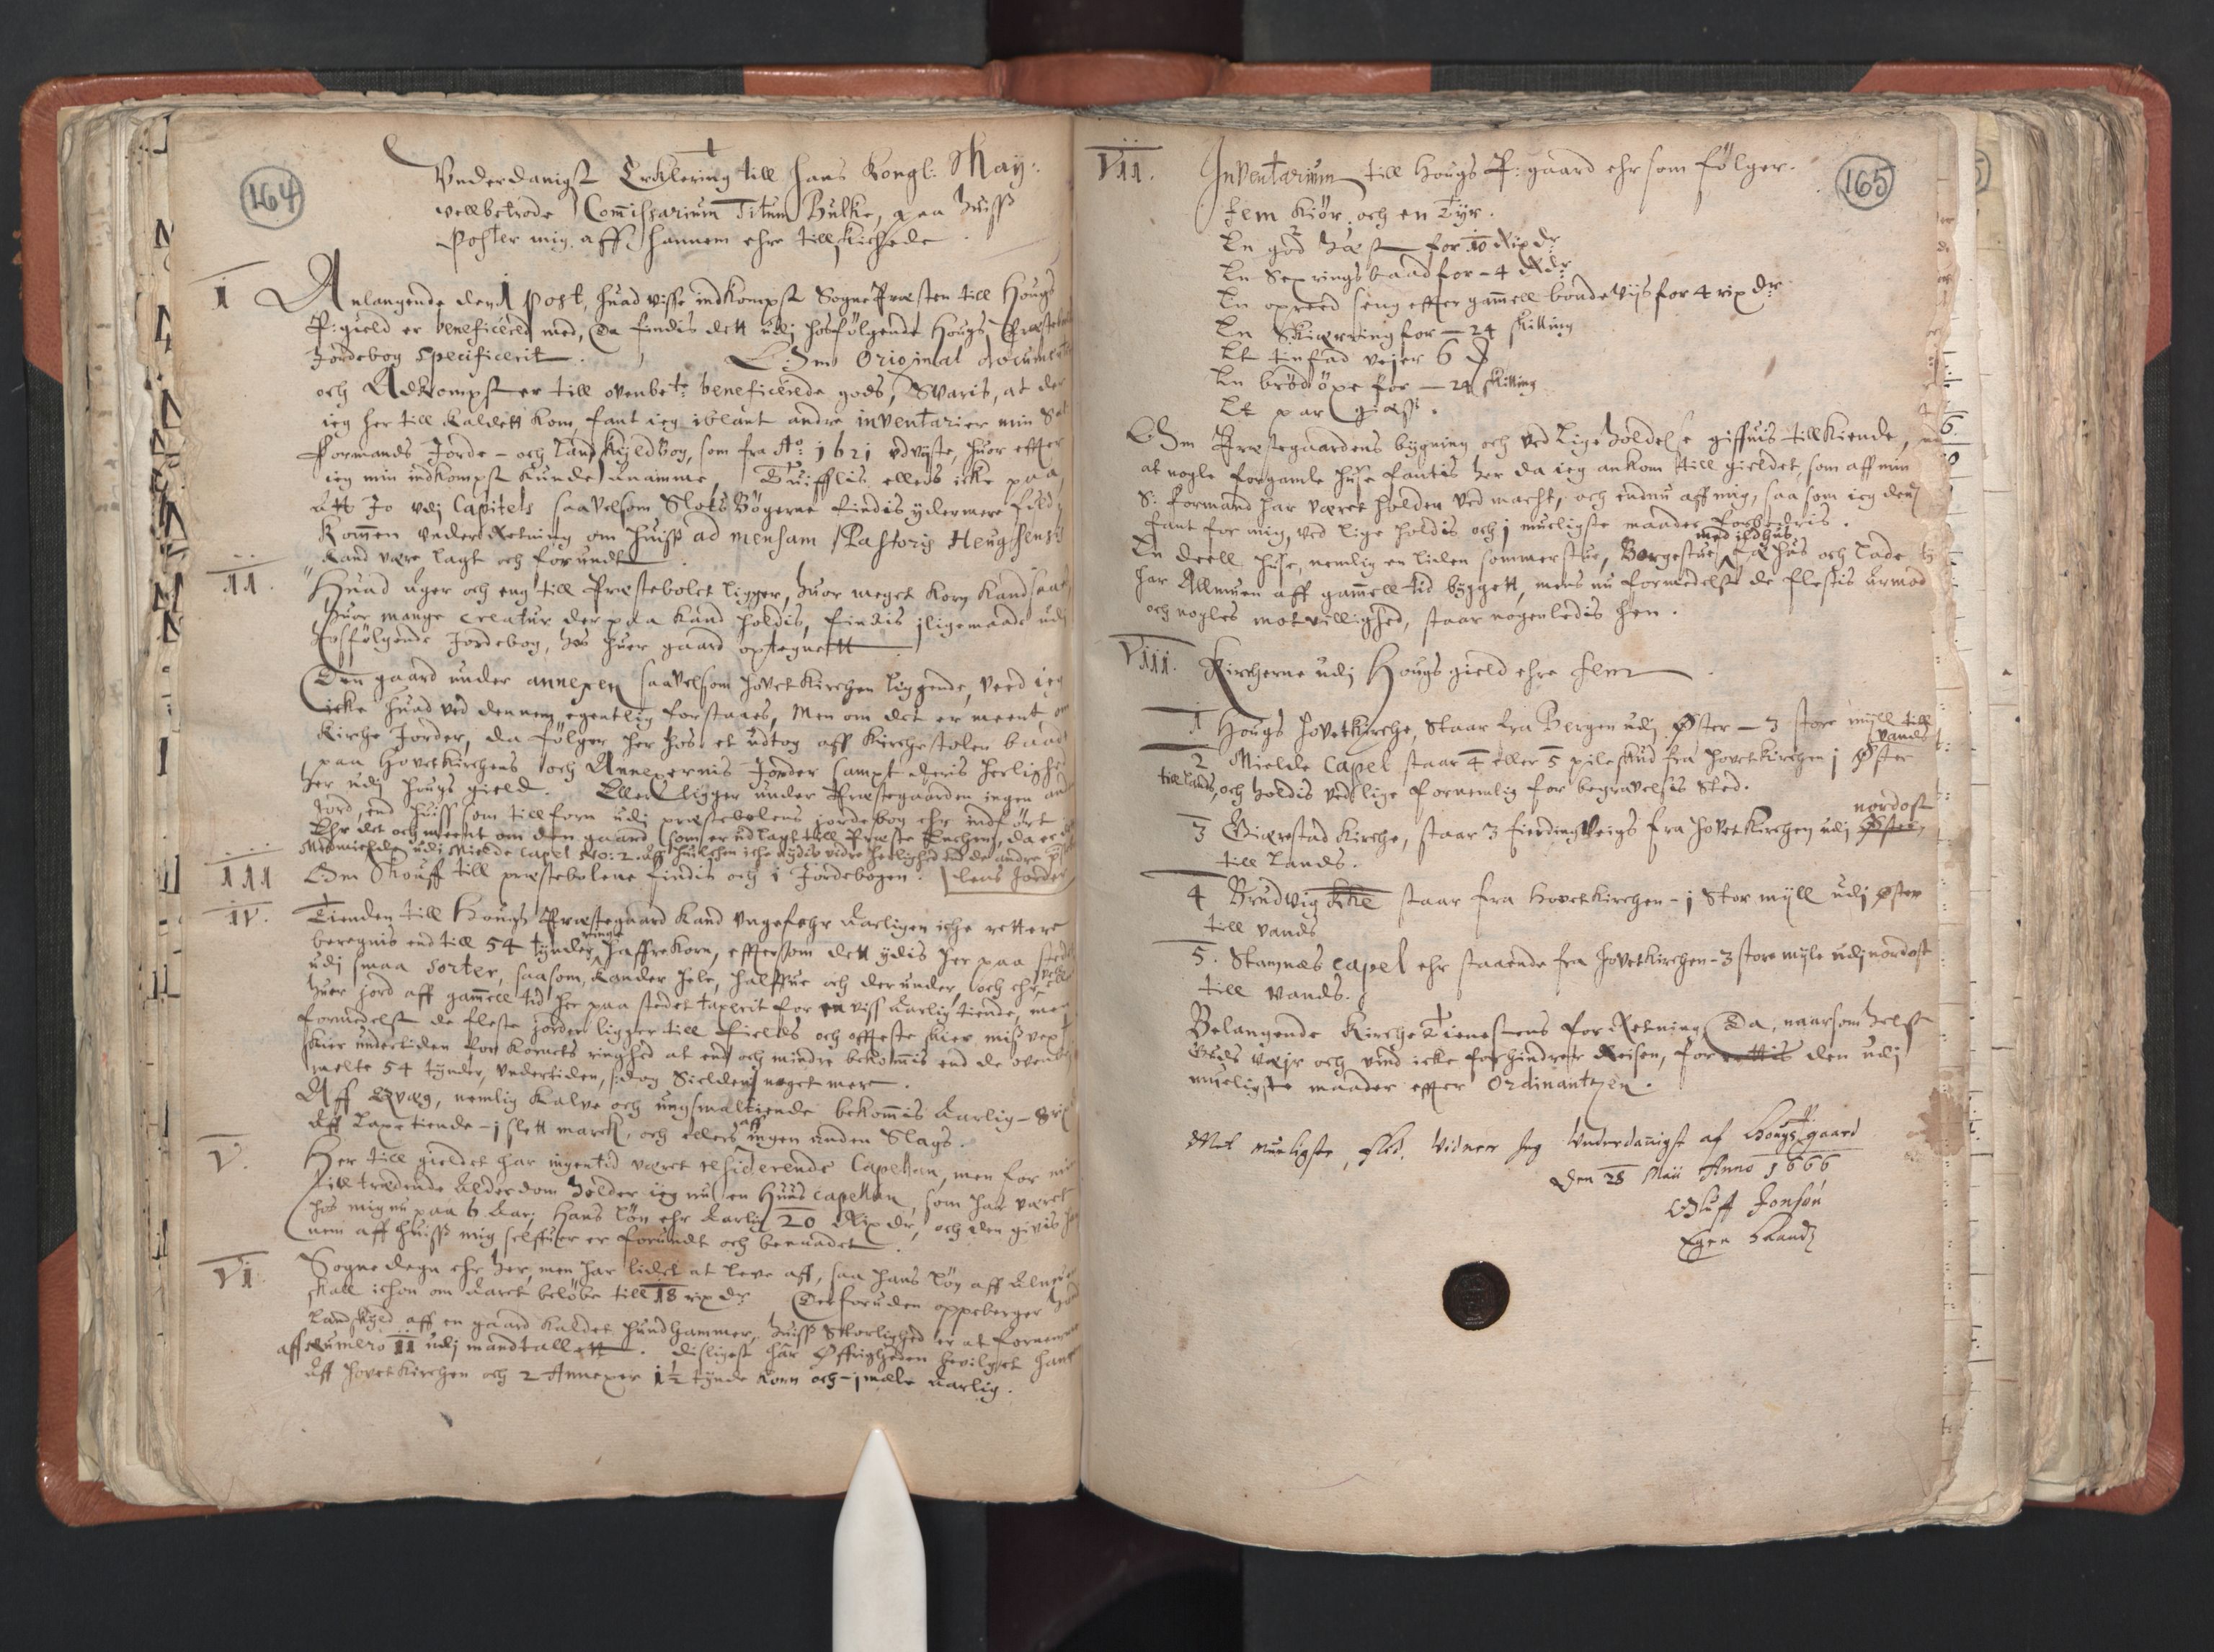 164
Underdanigst Erklering till hans Kongl: May:
vellbetrode Com̃issarium Titum Bulke, paa huiss
Poster mig aff hannem ehre tillskichede
I
Anlangende den 1 Post, huad visse indkompst SognePræsten till Hougs
P:gield er beneficered med, Da findis dett udj hosfølgende Hougs
Jordebog specificerit. Om Original documenter
och Adkompster till ovenbete beneficerede gods, Svaris, at der
ieg her till kaldett kom, fant ieg iblant andre inventarier min
Formands Jorde- och Landskyldbog, som fra Ao: 1621 udvyste, huor effter
ieg min indkompst kunde anamme, Tuifflis ellers icke paa,
att Jo udj Capitels saavelsom Slots Bøgerne findis ydermere
Kom̃en underRetning om huiss ad mensam Pastoris Heugsensis
kand være lagt och forundt.
II.
Huad ager och eng till Præstebolet ligger, huor meget korn kand saaes,
huor mange creatur derpaa kand holdis, findis jligemaade udj
hosfølgende Jordebog, hos huer gaard optegnett
Den gaard under annexen saavelsom hovetkirchen liggende, veed ieg
icke huad ved dennem egentlig forstaaes, Men om det er meent om
Kirche Jorder, da følger her hos et udtog aff kirchestolen baade
paa Hovetkirchens och Annexernis Jorder sampt deris herlighed
her udj Hougs gield. Ellers ligger under Præstegaarden ingen anden
Jord, end huiss som tillforn udj præstebolens jordebog ehr indført
Ehr det och meent om den gaard som er udlagt till Præste Enchens, da er det
udj Mielde Capel No: 2. aff huilchen iche nydis videre herlighed end de andre
lens Jorder
III
Om Skouff till præstebolene findis och i Jordebogen.
IV.
Tienden till Hougs Præstegaard kand ungefehr aarligen iche rettere
beregnis end till 54 tynder ringe haffrekorn, efftersom dett ydis her paa stedet
udj smaa sorter, saasom, Kander hele, halffue och derunder, och ehr
huer jord aff gam̃ell tid her paa stedet taxerit for en viss aarlig tiende, men
formedelst de fleste jorder ligger till fields och offteste skier missvext
skier undertiden for kornets ringhed at end och mindre bekom̃is end de ovenb
melte 54 tynder, undertiden, stdog Sielden noget mere.
Aff Qvæg, nemlig kalve och ungsmaltiende bekom̃is aarlig - 8 rix
Aff Laxetiende - j slett marck, och ellers aff ingen anden Slags.
V.
Her till gieldet har ingentid været residerende Capellan, men for min
tilltrædende alderdom holder ieg nu en Huus capellan, som har været
hos mig nu paa 6 Aar; hans løn ehr aarlig 20 Rix dr, och den givis
nem aff huiss mig selffuer er forundt och benaadet.
VI.
Sogne degn ehr her, men har lidet at leve aff, saa hans løn aff Almuen
skall ichon om aaret beløbe till 18 rix dr Derforuden oppeberger hand
Landskyld aff en gaard kaldet Hundhammer, huiss Storlighed er at fornemme
aff Numero II udj mandtallett. disligest har Øffrigheden bevilget hannem
aff hovetkirchen och 2 Annexer 1½ tynde korn och - j mæle aarlig.
165
VII.
Inventarium till Hougs P:gaard ehr som følger.
Fem kiør och en Tyr.
En god Hæst for 10 Rix dr
En Sexringsbaad for - 4 Rdr
En opreed seng effter gam̃ell bondeviis for 4 rix dr
En Skiærring for - 24 skilling
Et tinfad vejer 6
En brødøxe for - 24 skilling
Et par giæss.
Om Præstegaardens bygning och ved Lige holdelse giffuis tillkiende,
at nogle forgamle huse fantis her da ieg ankom till gieldet, som aff min
S: formand har været holden ved macht, och endnu aff mig, saa som ieg dem
fant for mig, ved lige holdis och j mueligste maader forbedris.
med ildhus
En deell huse, nemlig en liden sommerstue, Borgestue, Fæhus och lade
har Allmuen aff gam̃ell tid bygget, mens nu formedelst de flestis armod
och nogles motvillighed, staar nogenledis hen.
VIII.
Kircherne udj Hougs gield ehre fem
1 Hougs hovetkirche, Staar fra Bergen udj Øster - 3 store mijll till
vands
2 Mielde Capel staar 4 eller 5 pileskud fra hovetkirchen j Øster
till lands, och holdis ved lige fornemlig for begravelsis sted.
nordost
3 Giærestad Kirche, staar 3 fierdingVeigs fra hovetkirchen udj Øster,
till Lands.
4 Brudwig krke staar fra Hovetkirchen - j Stor myll udj Øster
till vands
5. Stamnæs capel ehr staaende fra hovetkirchen - 3 store myle udj nordost
till vands.
Belangende KircheTienestens forRetning Da, naarsom helst
Guds væjr och vind icke forhindrer Reisen, forrettis den udj
mueligste maader effter Ordinantzen.
Met mueligste Flid. Vidner Jeg Underdanigst af Hougs P: gaard
Den 28 Maii Anno 1666
Oluff Jonsøn
Egen Haand